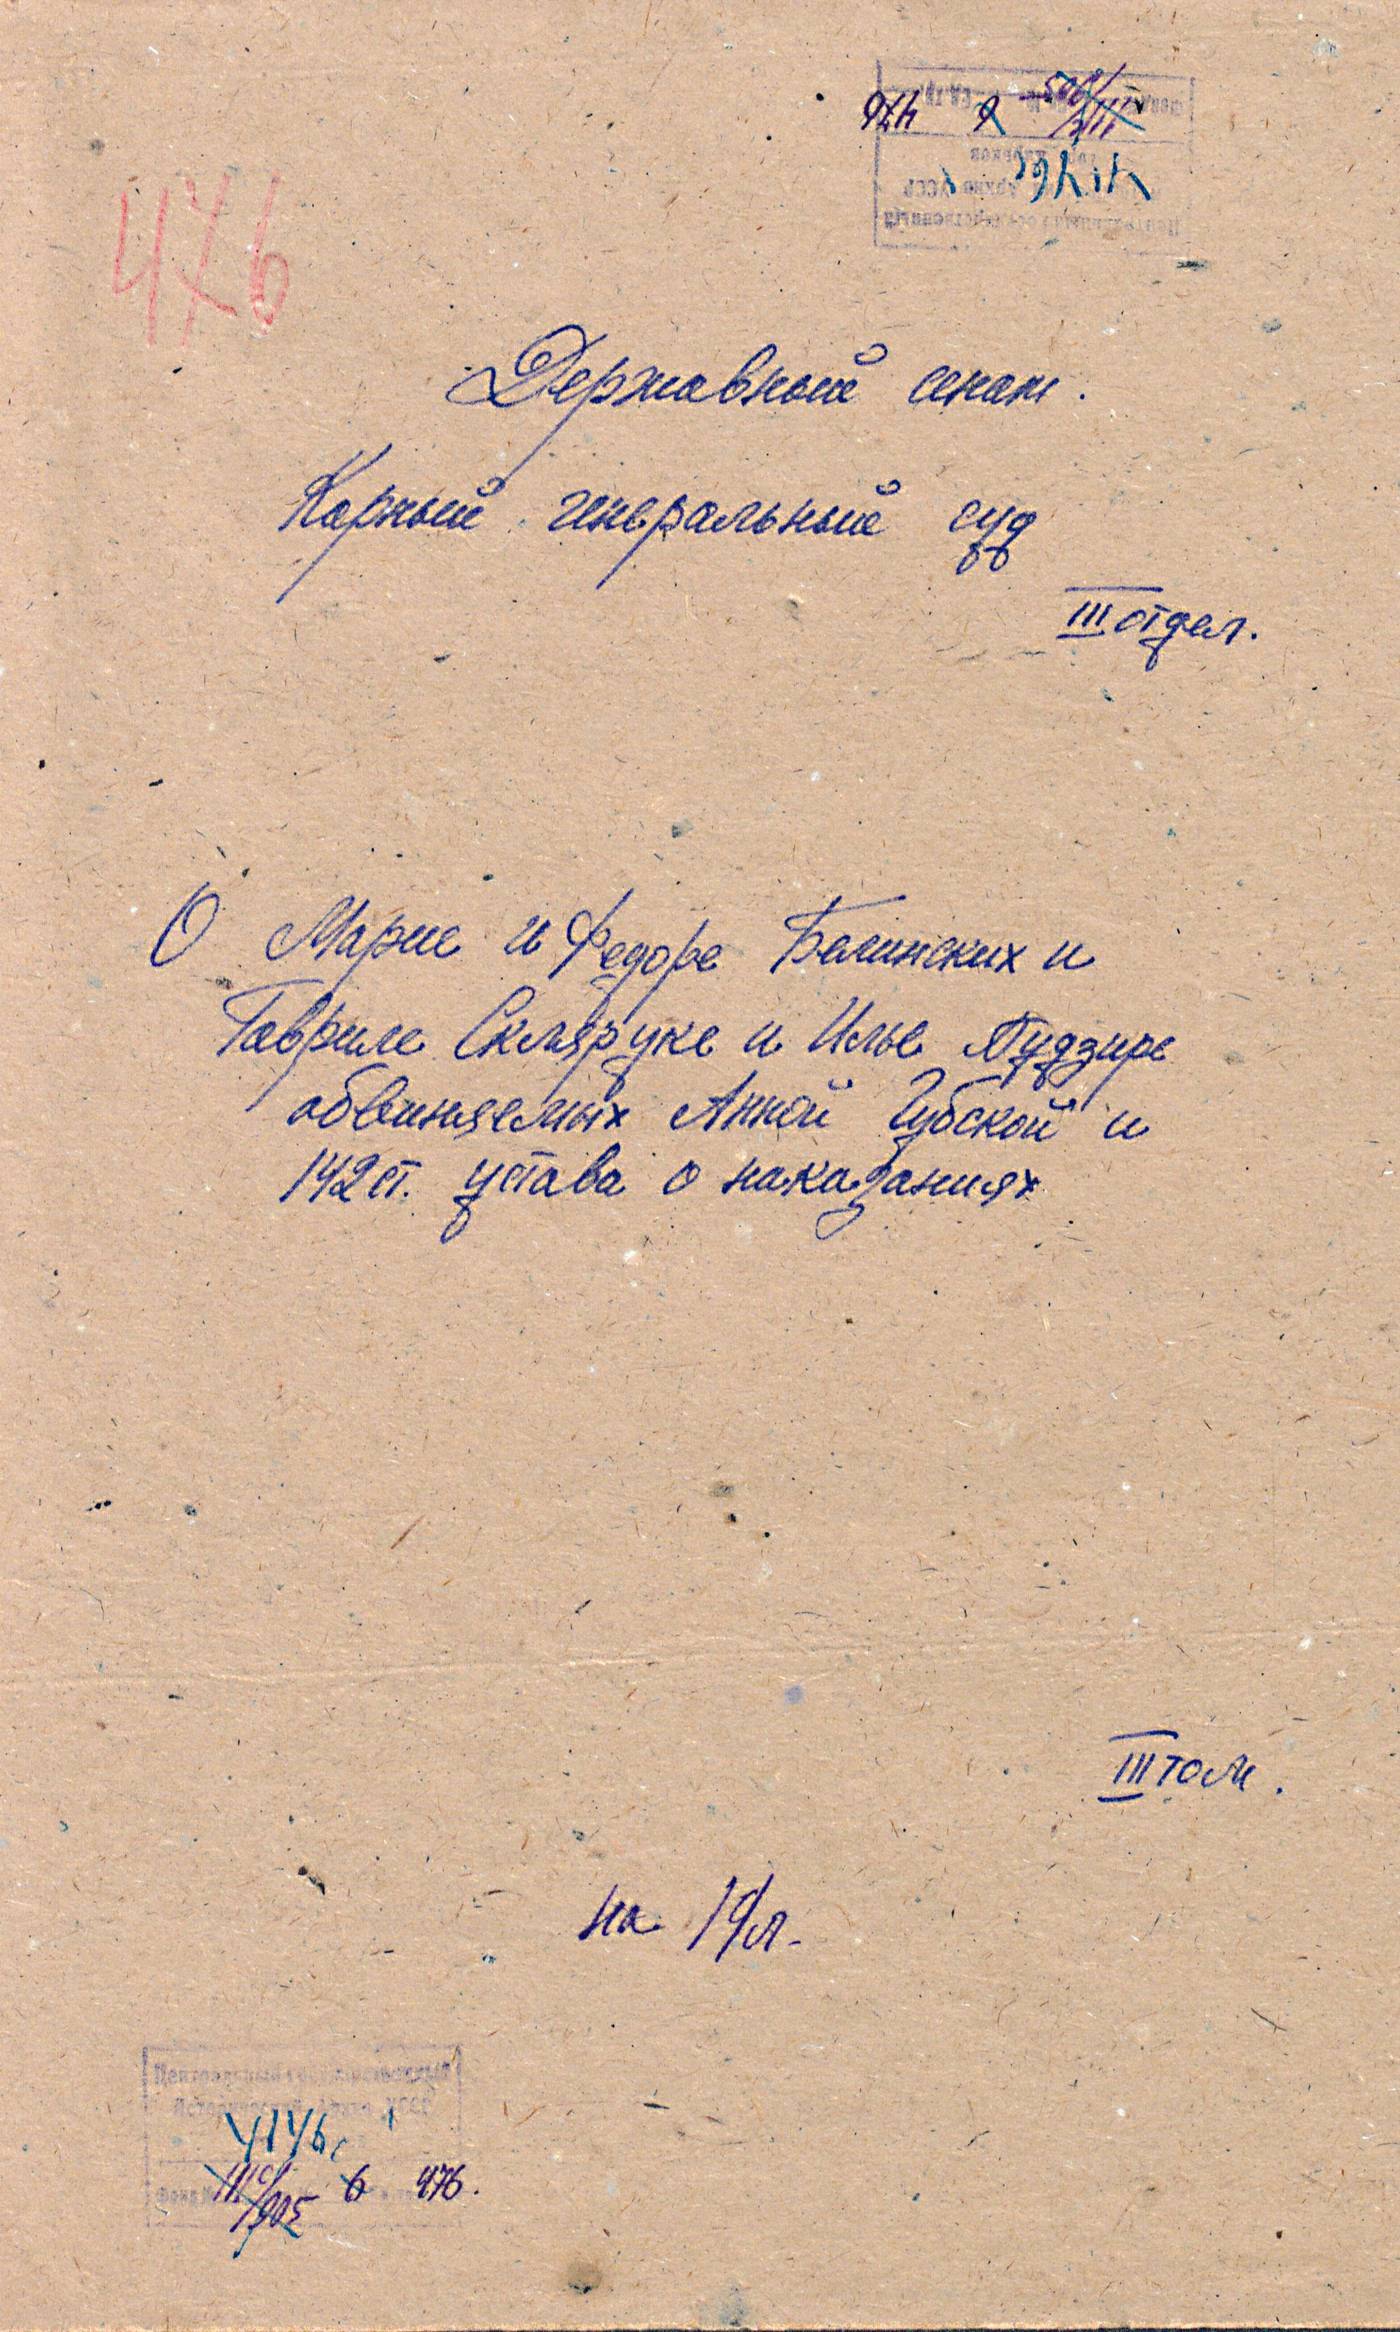 476
Державный сенат.
Карный генеральный суд
III отдел.
О Марие и Федоре Белинских и
Гавриле Скляруке и Илье Пудзире
обвиняемых Анной Губской и
142 ст. устава о наказаниях
III том.
на 19 л.
Центральный государственный
Исторический Архив УССР
6 476.